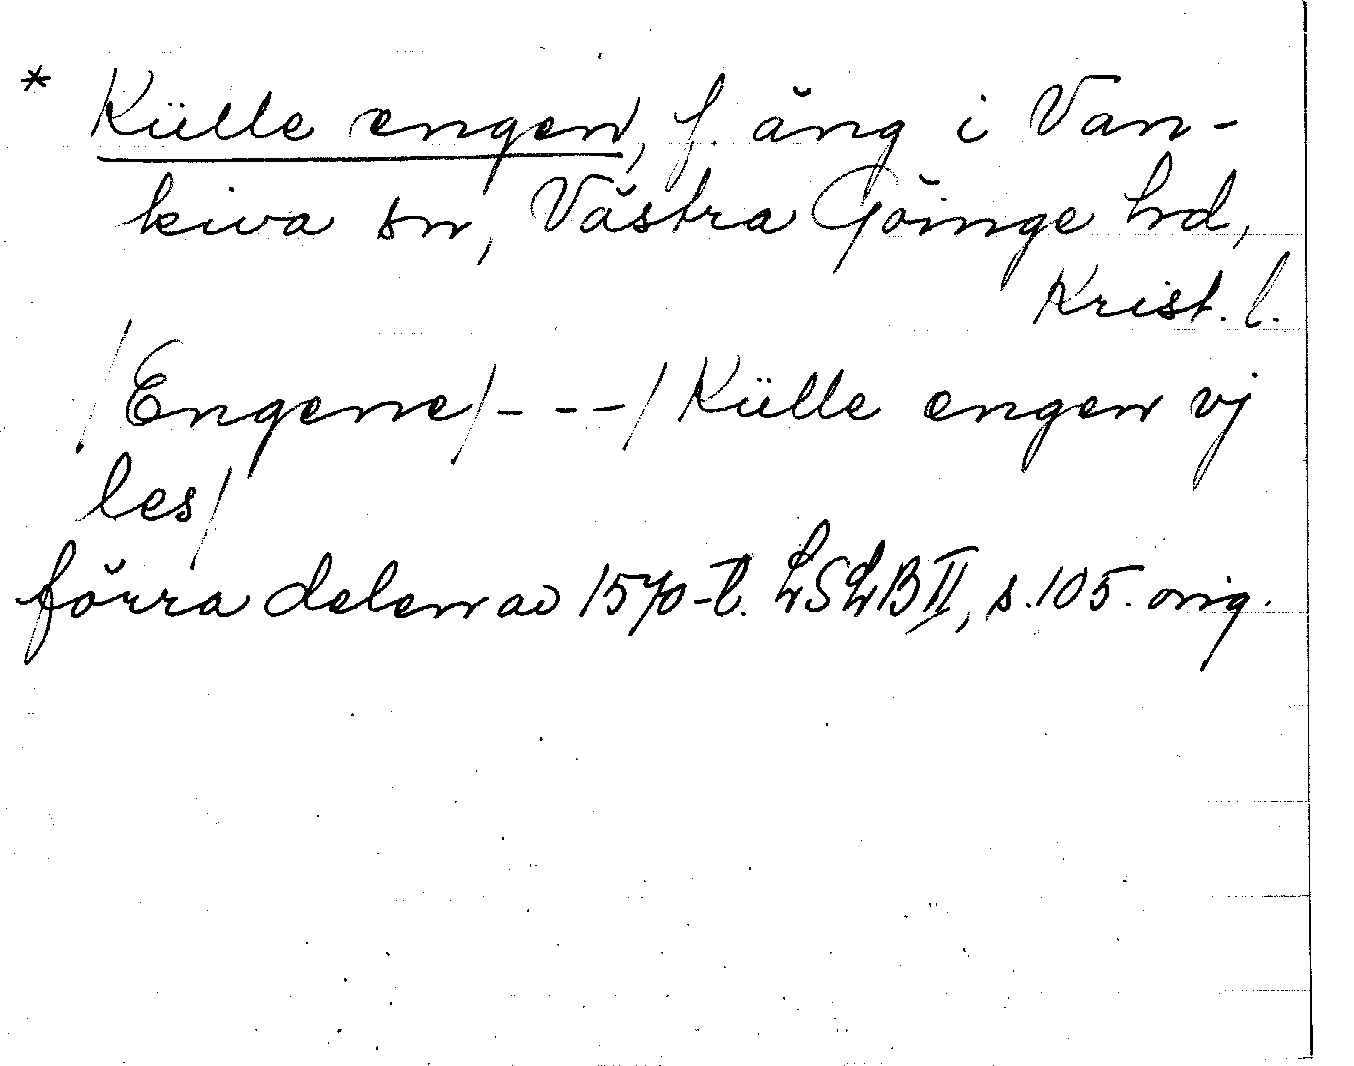 * Külle engen, f. äng i Van-
kiva sn, Västra Göinge hd,
Krist. l.
/Engene/---/Külle engen vj
les/
förra delen av 1570-t. LSLB II, s. 105. orig.